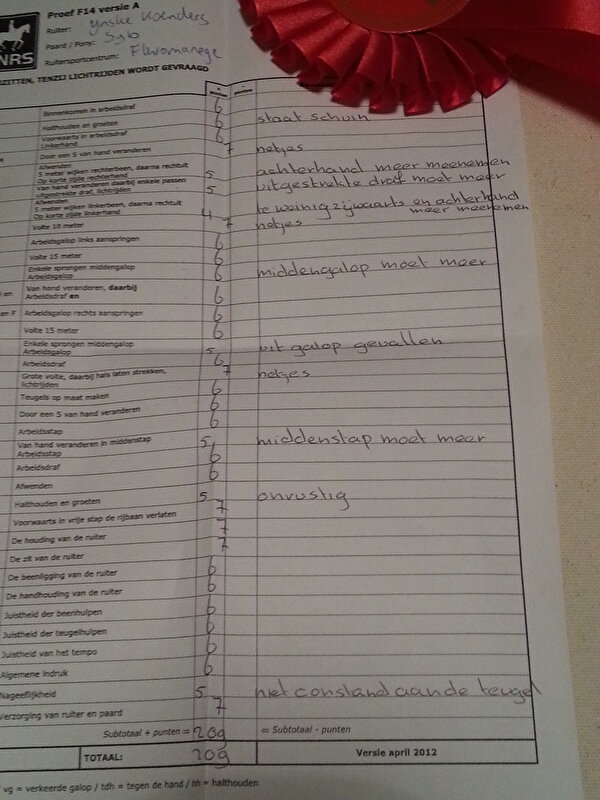 Proef F14 versie A
Ruiter: Ynske Koenders
Paard / Pony: Syb
Ruitersportcentrum: Flevomanege
NRS
ZITTEN, TENZIJ LICHTRIJDEN WORDT GEVRAAGD
+ punten - punten
Binnenkomen in arbeidsdraf 6
Halthouden en groeten 6 staat schuin
Voorwaarts in arbeidsdraf 6
Linkerhand
Door een S van hand veranderen 7 netjes
Afwenden
5 meter wijken rechterbeen, daarna rechtuit 5 achterhand meer meenemen
Op korte zijde rechterhand
Van hand veranderen daarbij enkele passen 5 uitgestrekte draf moet meer
uitgestrekte draf, lichtrijden
Afwenden
5 meter wijken linkerbeen, daarna rechtuit 4 te weinig zijwaarts en achterhand
Op korte zijde linkerhand meer meenemen
Volte 10 meter 7 netjes
Arbeidsgalop links aanspringen 6
Volte 15 meter 6
Enkele sprongen middengalop 6 middengalop moet meer
Arbeidsgalop
en Van hand veranderen, daarbij 6
Arbeidsdraf en
en F Arbeidsgalop rechts aanspringen 6
Volte 15 meter 6
Enkele sprongen middengalop 5 uit galop gevallen
Arbeidsgalop
Arbeidsdraf 6
Grote volte, daarbij hals laten strekken, 7 netjes
lichtrijden
Teugels op maat maken 6
Door een S van hand veranderen 6
Arbeidsstap 6
Van hand veranderen in middenstap 5 middenstap moet meer
Arbeidsstap
Arbeidsdraf 6
Afwenden 6
Halthouden en groeten 5 onrustig
Voorwaarts in vrije stap de rijbaan verlaten 7
De houding van de ruiter 7
De zit van de ruiter 7
De beenligging van de ruiter 6
De handhouding van de ruiter 6
Juistheid der beenhulpen 6
Juistheid der teugelhulpen 6
Juistheid van het tempo 6
Algemene indruk 6
Nageeflijkheid 5 niet constand aan de teugel
Verzorging van ruiter en paard 7
Subtotaal + punten ⇒ 209 ⇐ Subtotaal - punten
TOTAAL: 209 Versie april 2012
vg = verkeerde galop / tdh = tegen de hand / hh = halthouden